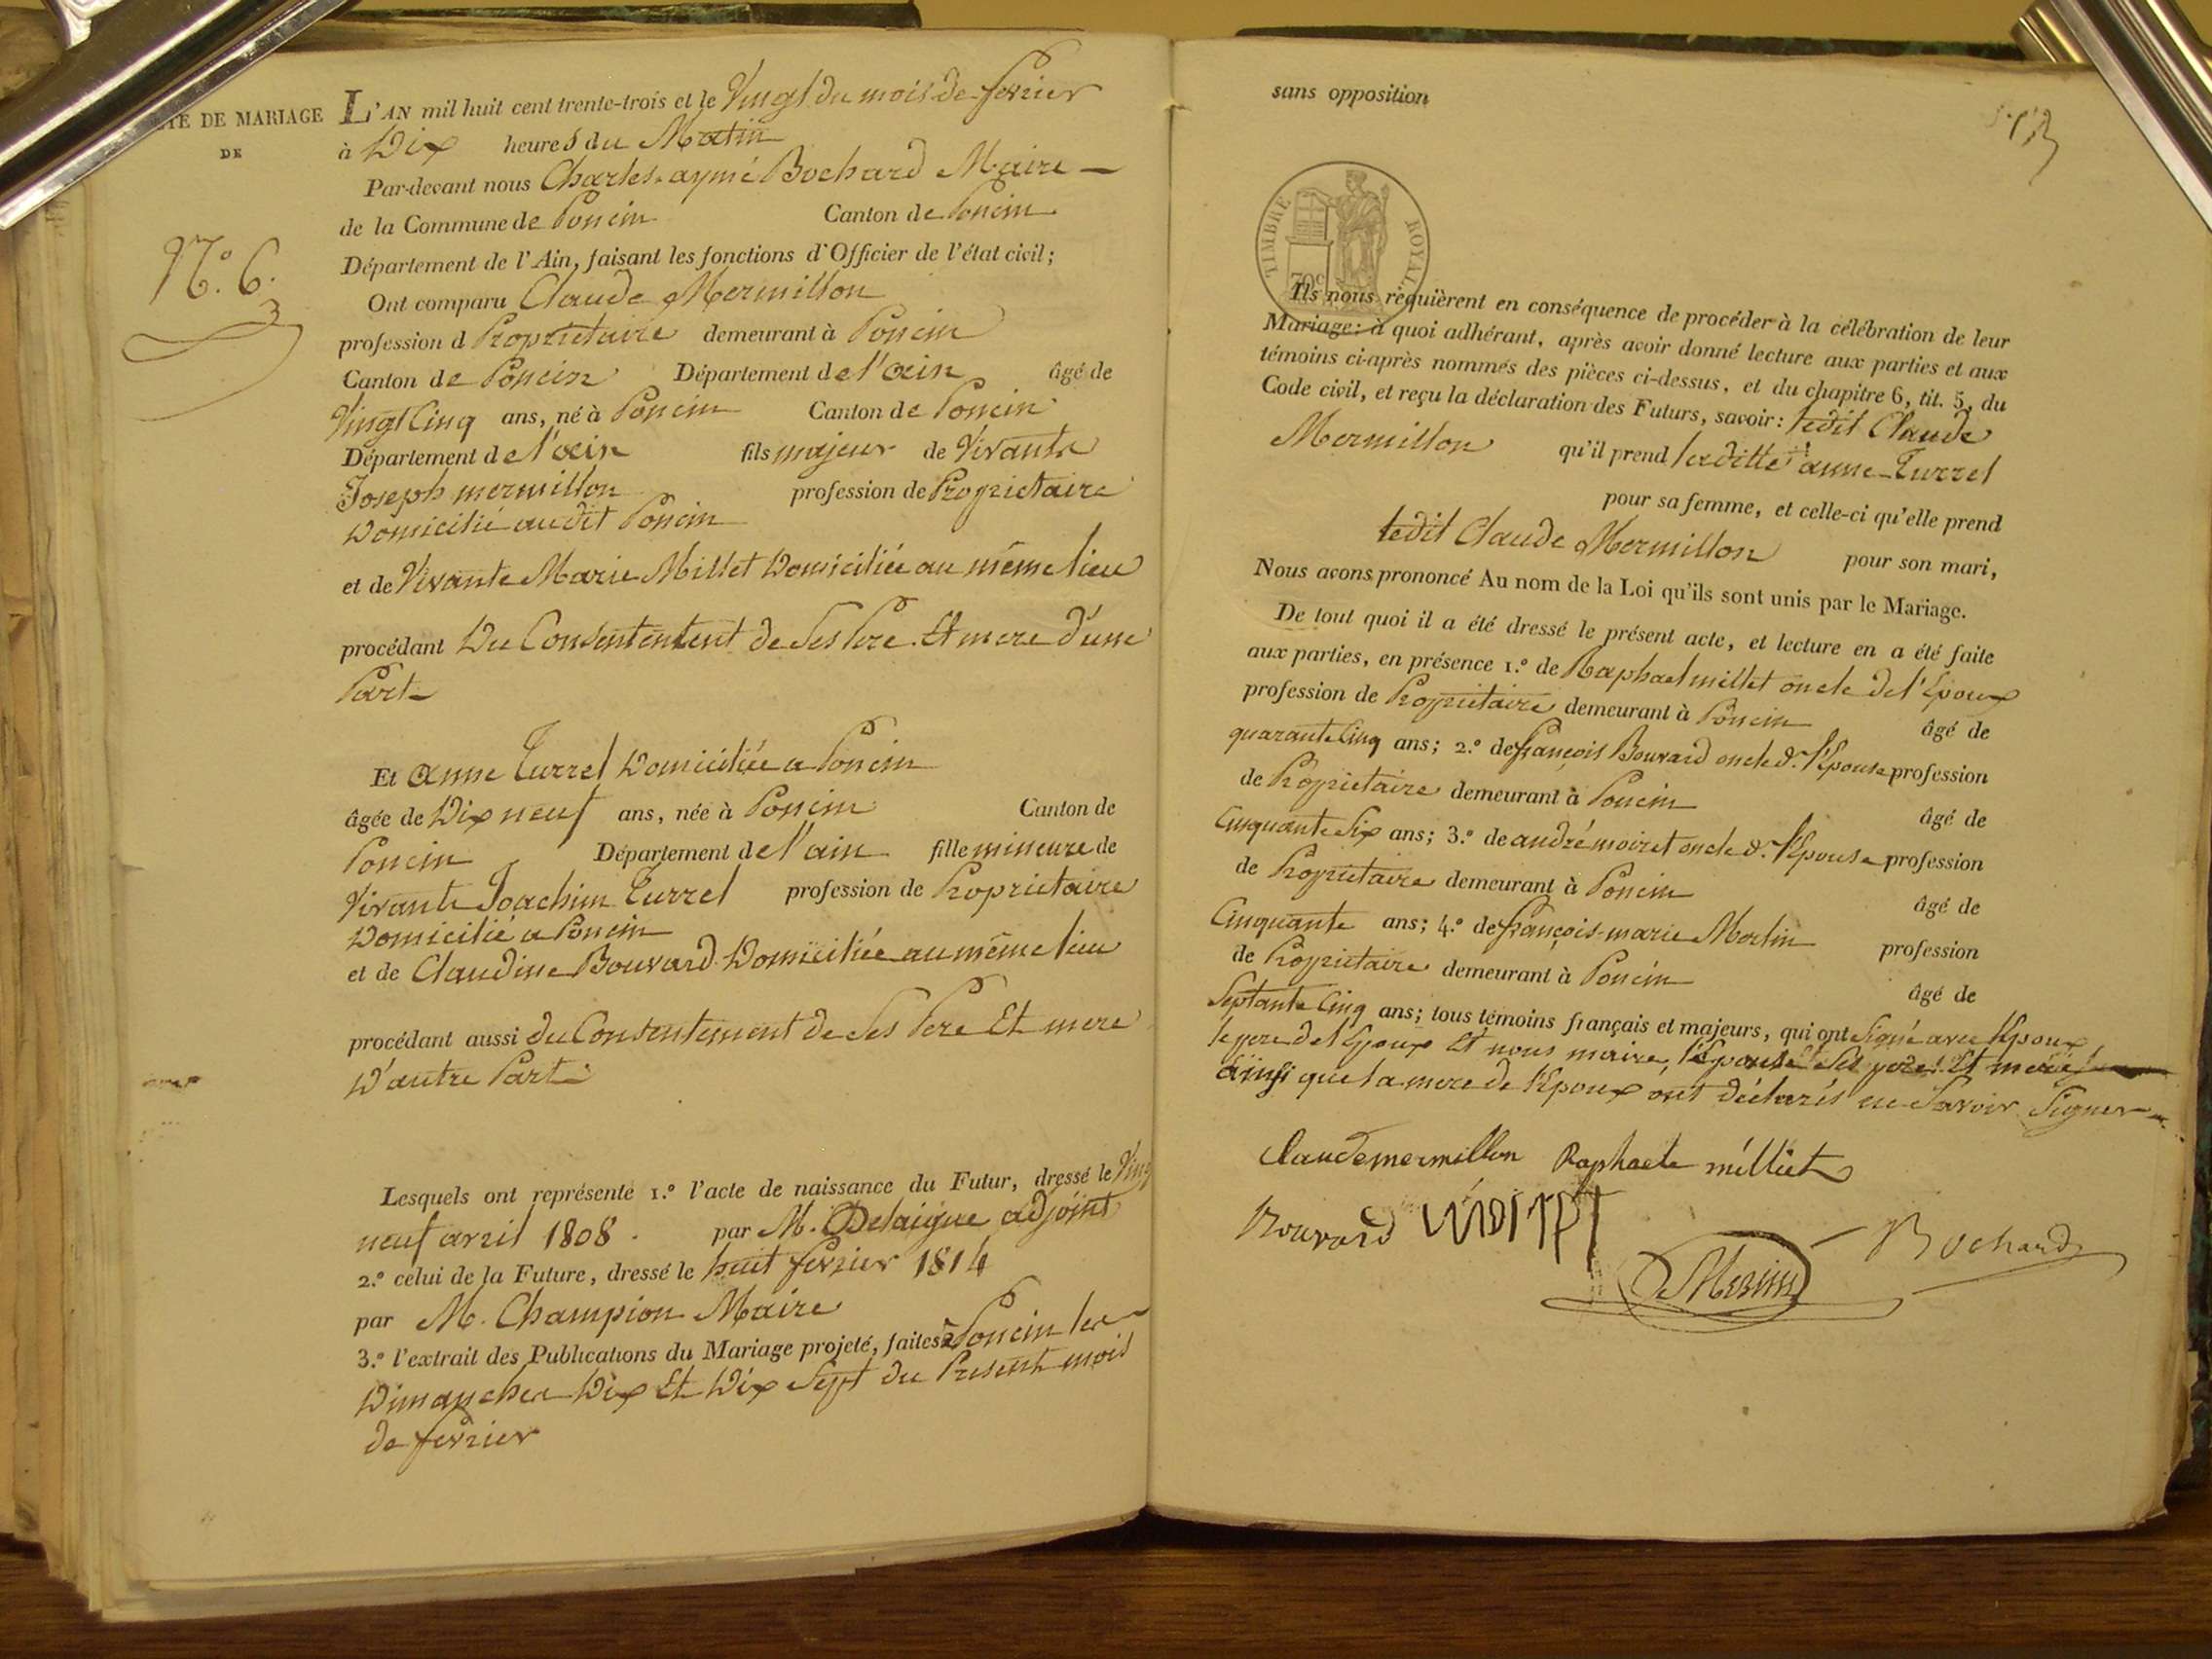 DE MARIAGE
DE
N.° 6.
L'AN mil huit cent trente-trois et le Vingt du mois de fevrier
à Dix heures du Matin
Par-devant nous Charles-aymé Bochard Maire
de la Commune de Poncin Canton de Poncin
Département de l'Ain, faisant les fonctions d'Officier de l'état civil;
Ont comparu Claude Mermillon
profession d Propriétaire demeurant à Poncin
Canton de Poncin Département de l'ain âgé de
Vingt Cinq ans, né à Poncin Canton de Poncin
Département de l'ain fils majeur de Vivants
Joseph mermillon profession de Propriétaire
Domicilié audit Poncin
et de Vivante Marie Millet Domiciliée au même lieu
procédant Du Consententent de Ses Pere Et mere d'une
Part
Et anne Turrel Domiciliée a Poncin
âgée de Dix neuf ans, née à Poncin Canton de
Poncin Département de l'ain fille mineure de
Vivants Joachim Turrel profession de Propriétaire
Domicilié a Poncin
et de Claudine Bouvard Domiciliée au même lieu
procédant aussi du Consentement de Ses Pere Et mere
D'autre Part
Lesquels ont représenté 1.° l'acte de naissance du Futur, dressé le Ving
neuf avril 1808. par M. Delaigue adjoint
2.° celui de la Future, dressé le huit fevrier 1814
par M. Champion Maire
3.° l'extrait des Publications du Mariage projeté, faites à Poncin les
Dimanches Dix Et Dix Sept du Present mois
de fevrier
sans opposition
TIMBRE ROYAL
70c
Ils nous requièrent en conséquence de procéder à la célébration de leur
Mariage: à quoi adhérant, après avoir donné lecture aux parties et aux
témoins ci-après nommés des pièces ci-dessus, et du chapitre 6, tit. 5, du
Code civil, et reçu la déclaration des Futurs, savoir: ledit Claude
Mermillon qu'il prend laditte anne Turrel
pour sa femme, et celle-ci qu'elle prend
ledit Claude Mermillon pour son mari,
Nous avons prononcé Au nom de la Loi qu'ils sont unis par le Mariage.
De tout quoi il a été dressé le présent acte, et lecture en a été faite
aux parties, en présence 1.° de Raphael millet oncle de l'Epoux
profession de Propriétaire demeurant à Poncin âgé de
quarante Cinq ans; 2.° de françois Bouvard oncle d. l'Epouse profession
de Propriétaire demeurant à Poncin âgé de
Cinquante Six ans; 3.° de andré moiret oncle d. l'Epouse profession
de Propriétaire demeurant à Poncin âgé de
Cinquante ans; 4.° de françois-marie Morlin profession
de Propriétaire demeurant à Poncin âgé de
Septante Cinq ans; tous témoins français et majeurs, qui ont Signé avec l'Epoux
le pere de l'Epoux Et nous maire, l'Epouse Ses pere Et mere
ainsi que la mere de l'Epoux ont déclarés ne Savoir Signer
Claude mermillon Raphaele milliet
Bouvard
Bochard